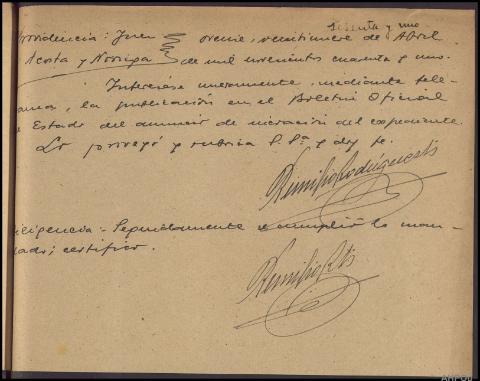 sesenta y uno
Providencia: Juez Orense, veintinueve de Abril
Acosta y Noriega de mil novecientos cuarenta y uno.
Interésese nuevamente, mediante tele-
ama, la publicación en el Boletin Oficial
Estado del anuncio de incoación del expediente.
Lo proveyó y rubrica S.Sª y doy fe.
Remilio
iligencia: Seguidamente se cumplió lo man-
dado; certifico.
Remilio